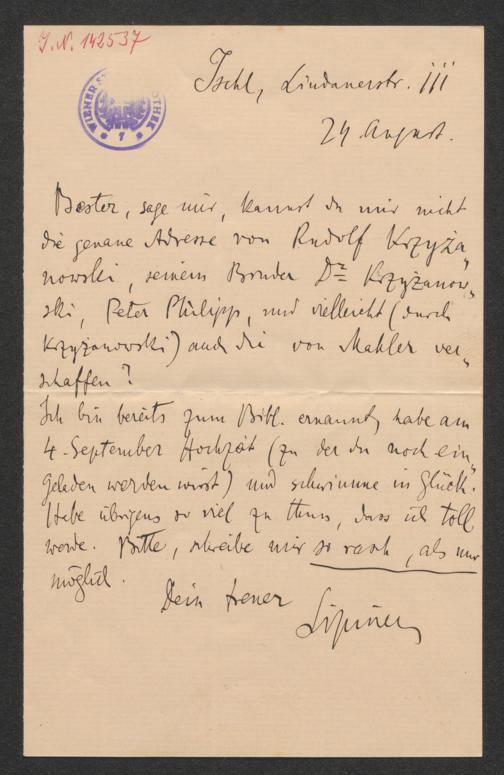 J. N. 142537
WIENER
7
Ischl, Lindauerstr. 111
24 August.
Bester, sage mir, kannst du mir nicht
die genaue Adresse von Rudolf Krzyża„
nowski, seinem Bruder Dr Krzyżanow„
ski, Peter Philipp, und vielleicht (durch
Krzyżanowski) auch die von Mahler ver„
schaffen?
Ich bin bereits zum Bibl. ernannt, habe am
4. September Hochzeit (zu der du noch ein„
geladen werden wirst) und schwimme in Glück.
Habe übrigens so viel zu thun, dass ich toll
werde. Bitte, schreibe mir so rasch, als nur
möglich.
Dein treuer
Lipiner